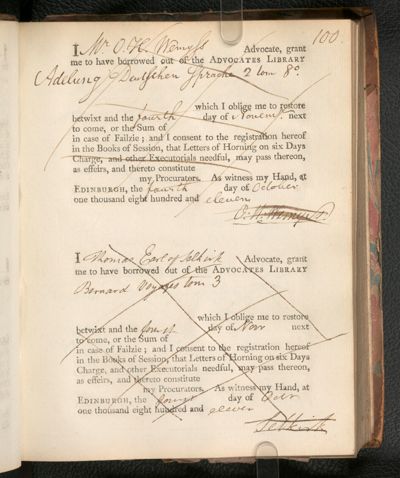 100.
I Mr O. H. Wemyss Advocate, grant
me to have borrowed out of the ADVOCATES LIBRARY
Adelung Deutschen Sprache 2 tom 8o.
which I oblige me to restore
betwixt and the fourth day of Novemr. next
to come, or the Sum of
in case of Failzie; and I consent to the registration hereof
in the Books of Session, that Letters of Horning on six Days
Charge, and other Executorials needful, may pass thereon,
as effeirs, and thereto constitute
my Procurators. As witness my Hand, at
EDINBURGH, the fourth day of October
one thousand eight hundred and eleven
O. H. Wemyss.
I Thomas Earl of Selkirk Advocate, grant
me to have borrowed out of the ADVOCATES LIBRARY
Bernard Voyages tom 3
which I oblige me to restore
betwixt and the day of Novr next
to come, or the Sum of
in case of Failzie; and I consent to the registration hereof
in the Books of Session, that Letters of Horning on six Days
Charge, and other Executorials needful, may pass thereon,
as effeirs, and thereto constitute
my Procurators. As witness my Hand, at
EDINBURGH, the day of Octr
one thousand eight hundred and eleven
Selkirk